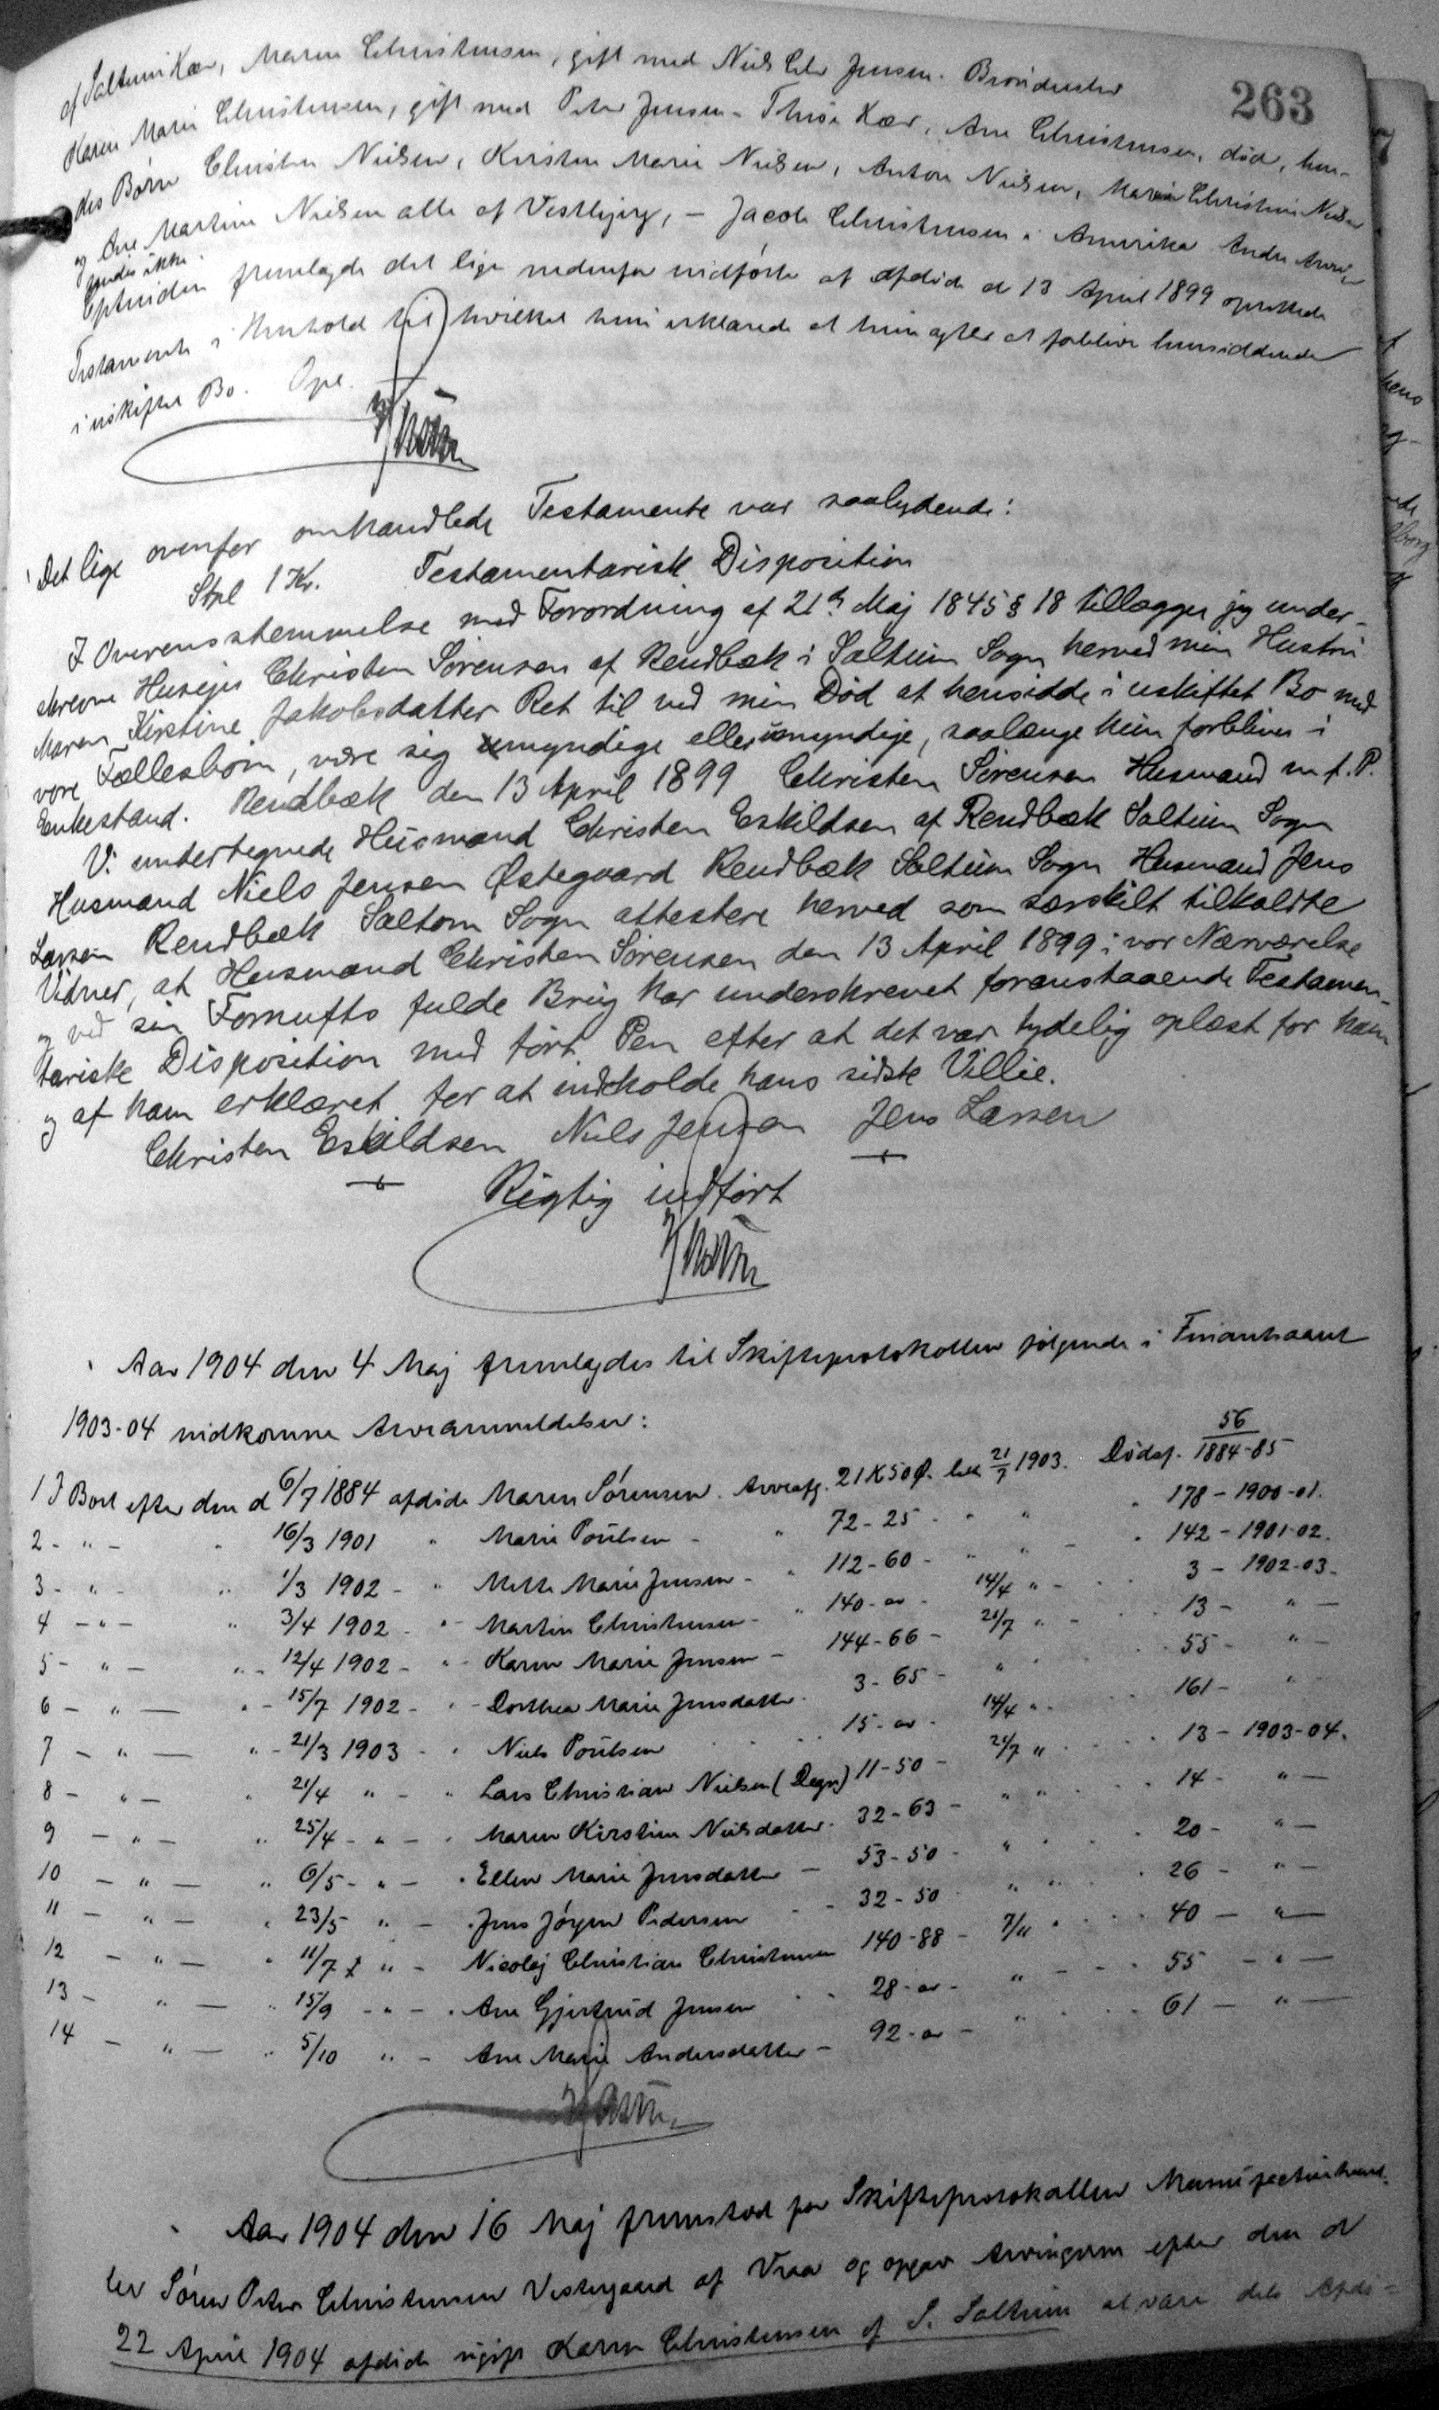 263
af Saltum Kær, Maren Christensen, gift med Niels Chr Jensen. Brønderslev
Karen Marie Christensen, gift med Peter Jensen - Thise Kær, Ane Christensen, død, hen-
des Børn Christen Nielsen, Kirsten Marie Nielsen, Anton Nielsen, Maren Christine Nielsen
og Ane Martine Nielsen alle af Vestbjerg, - Jacob Christensen i Amerika Andre Arvin-
gendes ikke.
Enken fremlagde det lige nedenfor indførte af afdøde d 13 April 1899 oprettede
Testamente i Henhold til hvilket hun erklærede at hun agter at forblive hensiddende
i uskiftet Bo. Opl.
Det lige ovenfor omhandlede Testamente var saalydende:
Stpl 1 Kr. Testamentarisk Disposition
I Overensstemmelse med Forordning af 21de Maj 1845 § 18 tillægger jeg under-
skrevne Husejer Christen Sørensen af Rendbæk i Saltum Sogn herved min Hustru
Maren Kirstine Jakobsdatter Ret til ved min Død at hensidde i uskiftet Bo med
vore Fællesbørn, være sig umyndige eller myndige, saalænge hun forbliver i
Enkestand. Rendbæk den 13 April 1899 Christen Sørensen Husmand m.f.P.
Vi undertegnede Husmand Christen Eskildsen af Rendbæk Saltum Sogn
Husmand Niels Jensen Østegaard Rendbæk Saltum Sogn Husmand Jens
Larsen Rendbæk Saltom Sogn attestere herved som særskilt tilkaldte
Vidner, at Husmand Christen Sørensen den 13 April 1899 i vor Nærværelse
og ved sin Fornufts fulde Brug har underskrevet foranstaaende Testamen-
tariske Disposition med ført Pen efter at det var tydelig oplæst for ham
og af ham erklæret for at indholde hans sidste Villie.
Christen Eskildsen Niels Jensen Jens Larsen
Rigtig indført
Aar 1904 den 4 Maj fremlagdes til Skifteprotokollen følgende i Finantsaaret
1903-04 indkomne Arveanmeldelser:
1 I Boet efter den d 6/7 1884 afdøde Maren Sørensen. Arveafg. 21 K 50 Ø. bet. 21/7 1903. Dødsf. 56/1884-85
2 - " - " 16/3 1901 " Marie Poulsen - " 72-25 - " " " 178-1900-01.
3 - " - " 1/3 1902 - " Mette Marie Jensen - " 112-60 - " " - " 142-1901-02.
4 - " - " 3/4 1902 - " - Martin Christensen - " 140- " - 14/4 " - 3-1902-03.
5 - " - " - 12/4 1902 - " - Karen Marie Jensen - 144-66 - 21/7 " - 13- " -
6 - " - " - 15/7 1902 - " - Dorthea Marie Jensdatter. 3-65 - " " 55- " -
7 - " - " - 21/3 1903 - " Niels Poulsen 15- " - 14/4 " 161- "
8 - " - " 21/4 " - " Lars Christian Nielsen (Degn) 11-50 - 21/7 " 13-1903-04.
9 - " - " 25/4 - " - " Maren Kirstine Nielsdatter. 32-63 - " " 14- " -
10 - " - " 6/5 - " - " Ellen Marie Jensdatter - 53-50 - " 20- " -
11 - " - " 23/5 " - " Jens Jørgen Pedersen 32-50 " " 26- " -
12 - " - " 11/7 " - Nicolaj Christian Christensen 140-88 - 7/11 " 40- " -
13 - " - " 15/9 - " - " Ane Gjertrud Jensen 28- " - " 55- " -
14 - " - " 5/10 " - Ane Marie Andersdatter - 92- " - " 61- " -
Aar 1904 den 16 Maj fremstod for Skifteprotokollen Manufacturhand-
ler Søren Peter Christensen Vestergaard af Vraa og opgav Arvingerne efter den d
22 April 1904 afdøde ugift Karen Christensen af S. Saltum at være dels Afdø-